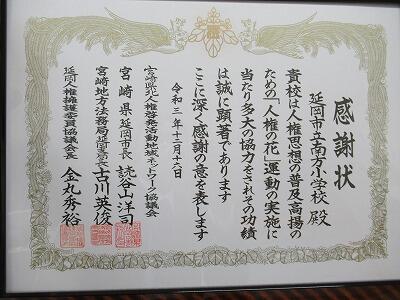 感謝状
延岡市立南方小学校 殿
貴校は人権思想の普及高揚の
ための「人権の花」運動の実施に
当たり多大の協力をされその功績
は誠に顕著であります
ここに深く感謝の意を表します
令和三年十二月十六日
宮崎県北人権啓発活動地域ネットワーク協議会
宮崎県延岡市長 読谷山洋司
宮崎地方法務局延岡支局長 古川英俊
延岡人権擁護委員協議会会長 金丸秀裕